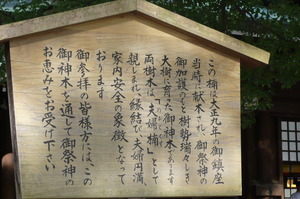 この楠は大正九年の御鎮座
当時に献木され、御祭神の
御加護のもと樹勢瑞々しき
大樹に育った御神木であります
両樹木は「夫婦楠」として
親しまれ、縁結び、夫婦円満、
家内安全の象徴となって
おります
御参拝の皆様方には、この
御神木を通して御祭神の
お恵みをお受け下さい